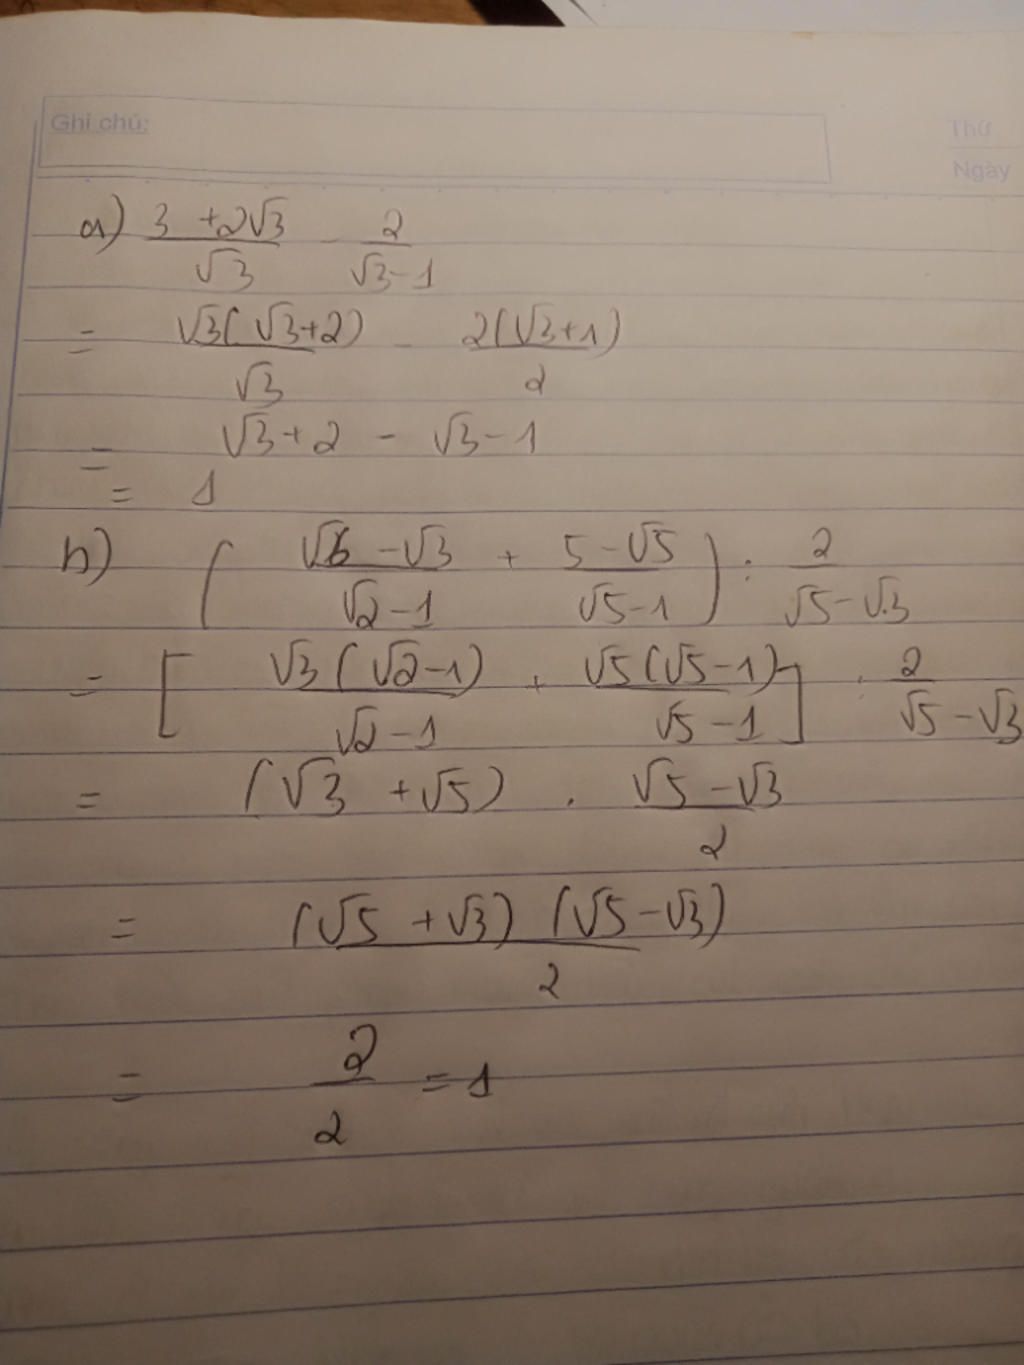 Ghi chú:
Thứ
Ngày
a) (3 + 2√3)/√3 - 2/(√3 - 1)
= √3(√3 + 2)/√3 - 2(√3 + 1)/2
= √3 + 2 - √3 - 1
= 1
b) ((√6 - √3)/(√2 - 1) + (5 - √5)/(√5 - 1)) : 2/(√5 - √3)
= [√3(√2 - 1)/(√2 - 1) + √5(√5 - 1)/(√5 - 1)] : 2/(√5 - √3)
= (√3 + √5) . (√5 - √3)/2
= (√5 + √3)(√5 - √3)/2
= 2/2 = 1